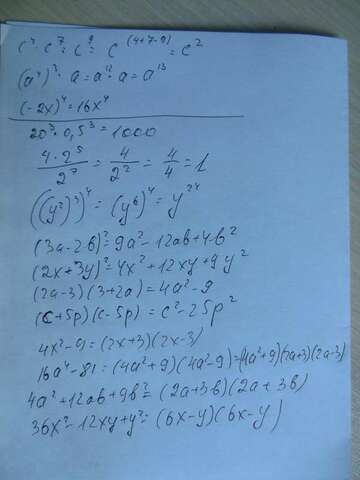 c⁴ · c⁷ : c⁹ = c⁽⁴⁺⁷⁻⁹⁾ = c²
(a⁴)³ · a = a¹² · a = a¹³
(-2x)⁴ = 16x⁴
20³ · 0,5³ = 1000
4 · 2⁵ / 2⁷ = 4 / 2² = 4 / 4 = 1
((y²)³)⁴ = (y⁶)⁴ = y²⁴
(3a-2b)² = 9a² - 12ab + 4b²
(2x+3y)² = 4x² + 12xy + 9y²
(2a-3)(3+2a) = 4a² - 9
(c+5p)(c-5p) = c² - 25p²
4x² - 9 = (2x+3)(2x-3)
16a⁴ - 81 = (4a²+9)(4a²-9) = (4a²+9)(2a+3)(2a-3)
4a² + 12ab + 9b² = (2a+3b)(2a+3b)
36x² - 12xy + y² = (6x-y)(6x-y)